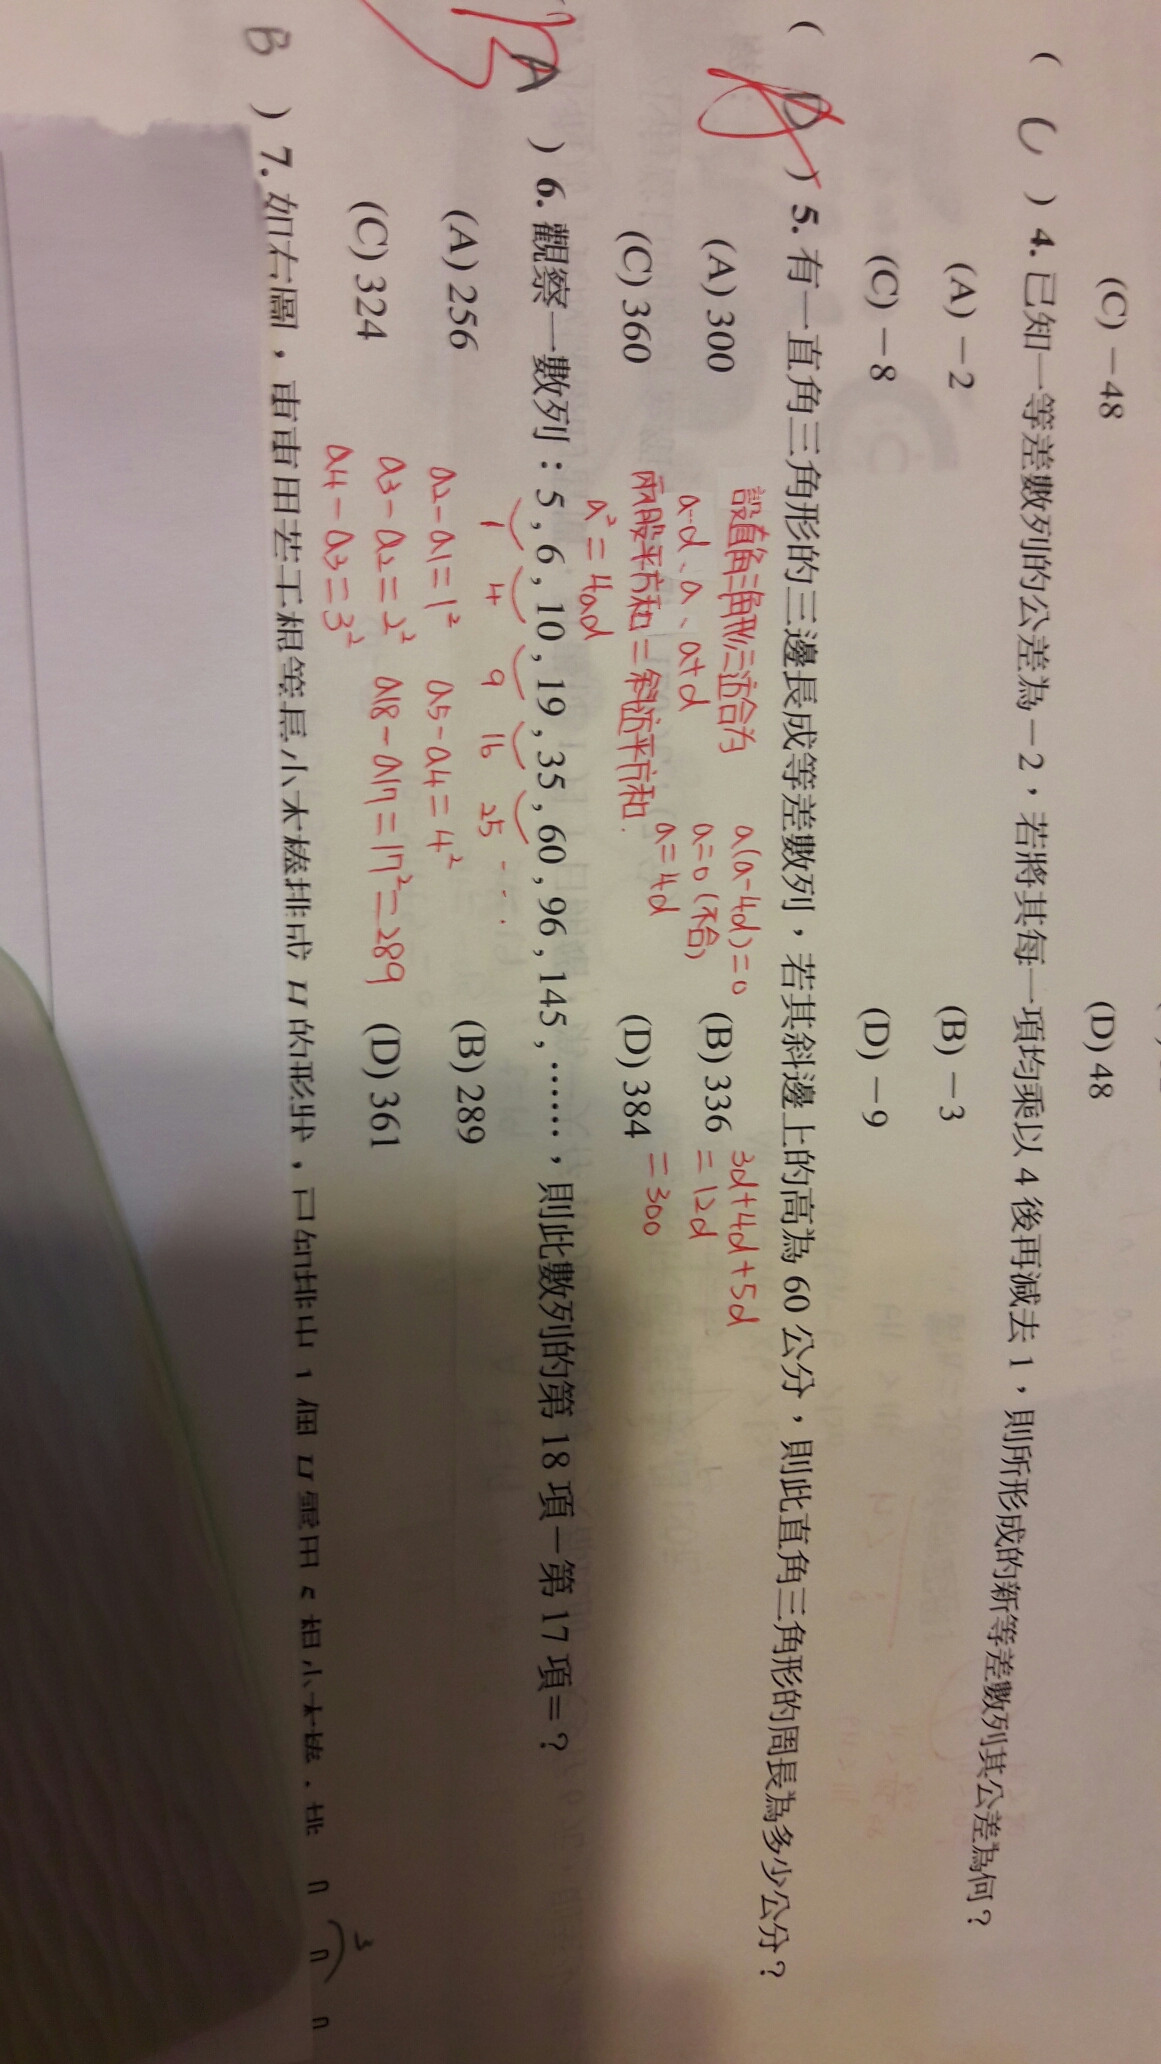 (C) －48
(D) 48
( C ) 4. 已知一等差數列的公差為－2，若將其每一項均乘以 4 後再減去 1，則所形成的新等差數列其公差為何？
(A) －2
(B) －3
(C) －8
(D) －9
( D ) 5. 有一直角三角形的三邊長成等差數列，若其斜邊上的高為 60 公分，則此直角三角形的周長為多少公分？
(A) 300
(B) 336
(C) 360
(D) 384
設直角三角形三邊合為
a-d、a、a+d
兩股平方和=斜邊平方和.
a²=4ad
a(a-4d)=0
a=0 (不合)
a=4d
3d+4d+5d
=12d
=300
A ) 6. 觀察一數列：5 , 6 , 10 , 19 , 35 , 60 , 96 , 145 , ……，則此數列的第 18 項－第 17 項＝？
1 4 9 16 25 ...
(A) 256
(B) 289
(C) 324
(D) 361
a2-a1=1²
a3-a2=2²
a4-a3=3²
a5-a4=4²
a18-a17=17²=289
B ) 7. 如右圖，
3